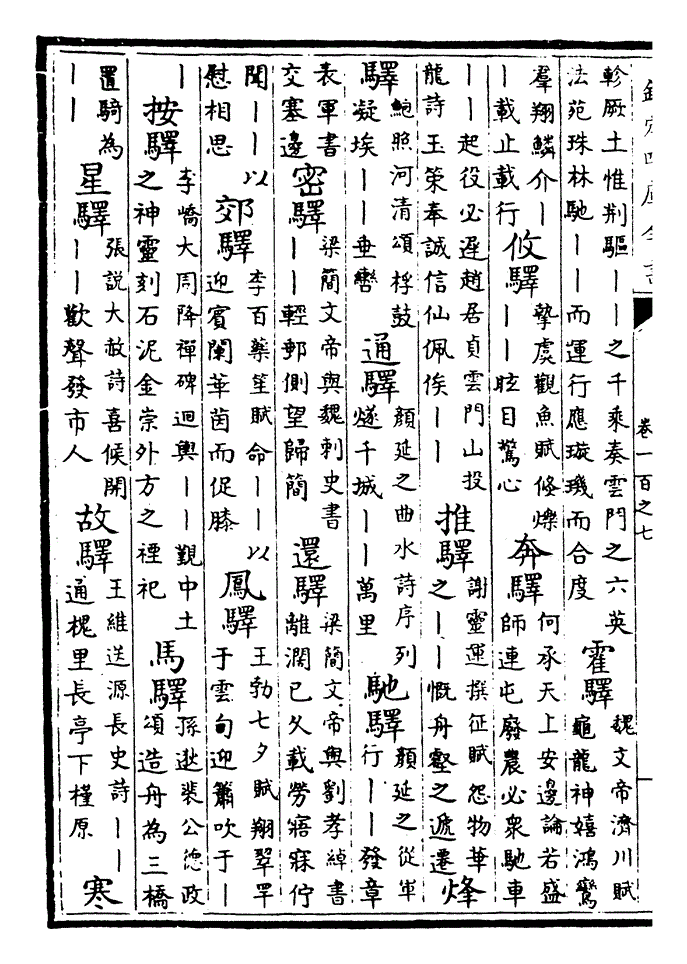 欽定四庫全書
卷一百之七
軫厥土惟荆驅——之千乘奏雲門之六英
法苑珠林馳——而運行應璇璣而合度
霍驛
魏文帝濟川賦
龜龍神嬉鴻鸞
羣翔鱗介—
—載止載行
攸驛
摯虞觀魚賦倏爍
——眩目驚心
奔驛
何承天上安邊論若盛
師連屯廢農必衆馳車
——起役必遲趙居貞雲門山投
龍詩玉策奉誠信仙佩俟——
推驛
謝靈運撰征賦怨物華
之——慨舟壑之遞遷
烽
驛
鮑照河清頌桴鼓
凝埃——垂轡
通驛
顔延之曲水詩序列
燧千城——萬里
馳驛
顔延之從軍
行——發章
表軍書
交塞邊
密驛
梁簡文帝與魏刺史書
——輕郵側望歸簡
還驛
梁簡文帝與劉孝綽書
離濶已久載勞寤寐佇
聞——以
慰相思
郊驛
李百藥笙賦命——以
迎賓闡華茵而促膝
鳳驛
王勃七夕賦翔翠罕
于雲旬迎簫吹于—
—
按驛
李嶠大周降禪碑迴輿——覲中土
之神靈刻石泥金崇外方之禋祀
馬驛
孫逖裴公德政
頌造舟為三橋
置騎為
——
星驛
張説大赦詩喜候開
——歡聲發市人
故驛
王維送源長史詩——
通槐里長亭下槿原
寒